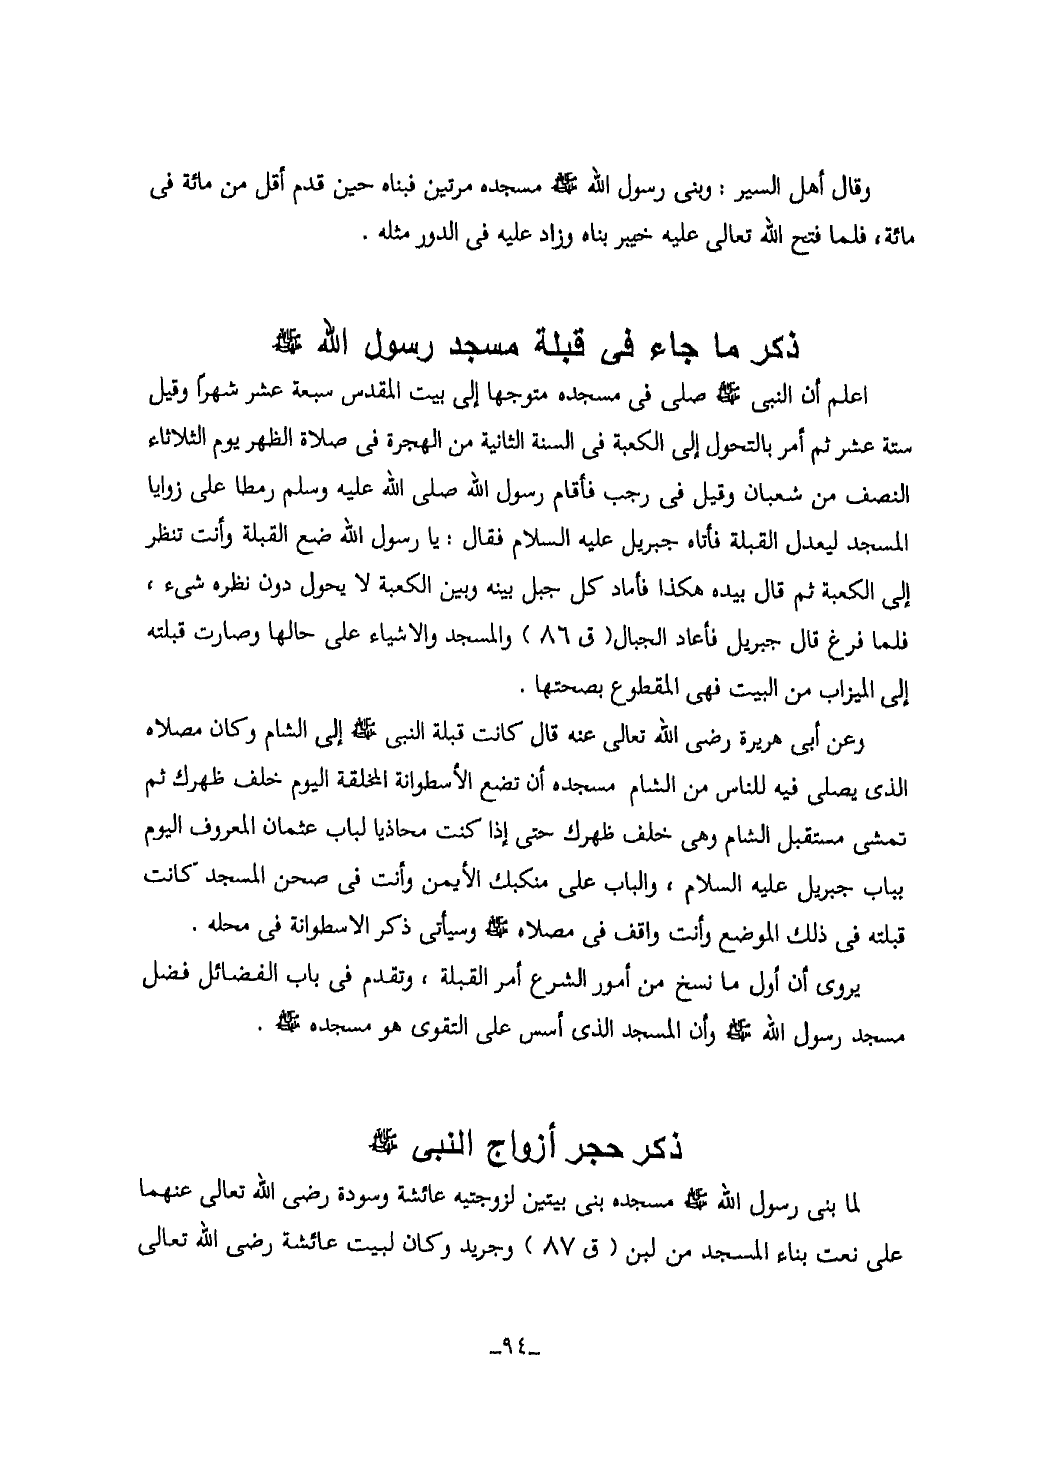 وقال أهل السير : وبنى رسول الله ﷺ مسجده مرتين فبناه حين قدم أقل من مائة فى
مائة، فلما فتح الله تعالى عليه خيبر بناه وزاد عليه فى الدور مثله .
ذكر ما جاء فى قبلة مسجد رسول الله ﷺ
اعلم أن النبى ﷺ صلى فى مسجده متوجها إلى بيت المقدس سبعة عشر شهراً وقيل
ستة عشر ثم أمر بالتحول إلى الكعبة فى السنة الثانية من الهجرة فى صلاة الظهر يوم الثلاثاء
النصف من شعبان وقيل فى رجب فأقام رسول الله صلى الله عليه وسلم رمطا على زوايا
المسجد ليعدل القبلة فأتاه جبريل عليه السلام فقال : يا رسول الله ضع القبلة وأنت تنظر
إلى الكعبة ثم قال بيده هكذا فأماد كل جبل بينه وبين الكعبة لا يحول دون نظره شىء ،
فلما فرغ قال جبريل فأعاد الجبال( ق ٨٦ ) والمسجد والاشياء على حالها وصارت قبلته
إلى الميزاب من البيت فهى المقطوع بصحتها .
وعن أبى هريرة رضى الله تعالى عنه قال كانت قبلة النبى ﷺ إلى الشام وكان مصلاه
الذى يصلى فيه للناس من الشام مسجده أن تضع الأسطوانة المخلقة اليوم خلف ظهرك ثم
تمشى مستقبل الشام وهى خلف ظهرك حتى إذا كنت محاذيا لباب عثمان المعروف اليوم
بباب جبريل عليه السلام ، والباب على منكبك الأيمن وأنت فى صحن المسجد كانت
قبلته فى ذلك الموضع وأنت واقف فى مصلاه ﷺ وسيأتى ذكر الاسطوانة فى محله .
يروى أن أول ما نسخ من أمور الشرع أمر القبلة ، وتقدم فى باب الفضائل فضل
مسجد رسول الله ﷺ وأن المسجد الذى أسس على التقوى هو مسجده ﷺ .
ذكر حجر أزواج النبى ﷺ
لما بنى رسول الله ﷺ مسجده بنى بيتين لزوجتيه عائشة وسودة رضى الله تعالى عنهما
على نعت بناء المسجد من لبن ( ق ٨٧ ) وجريد وكان لبيت عائشة رضى الله تعالى
ـ٩٤ـ